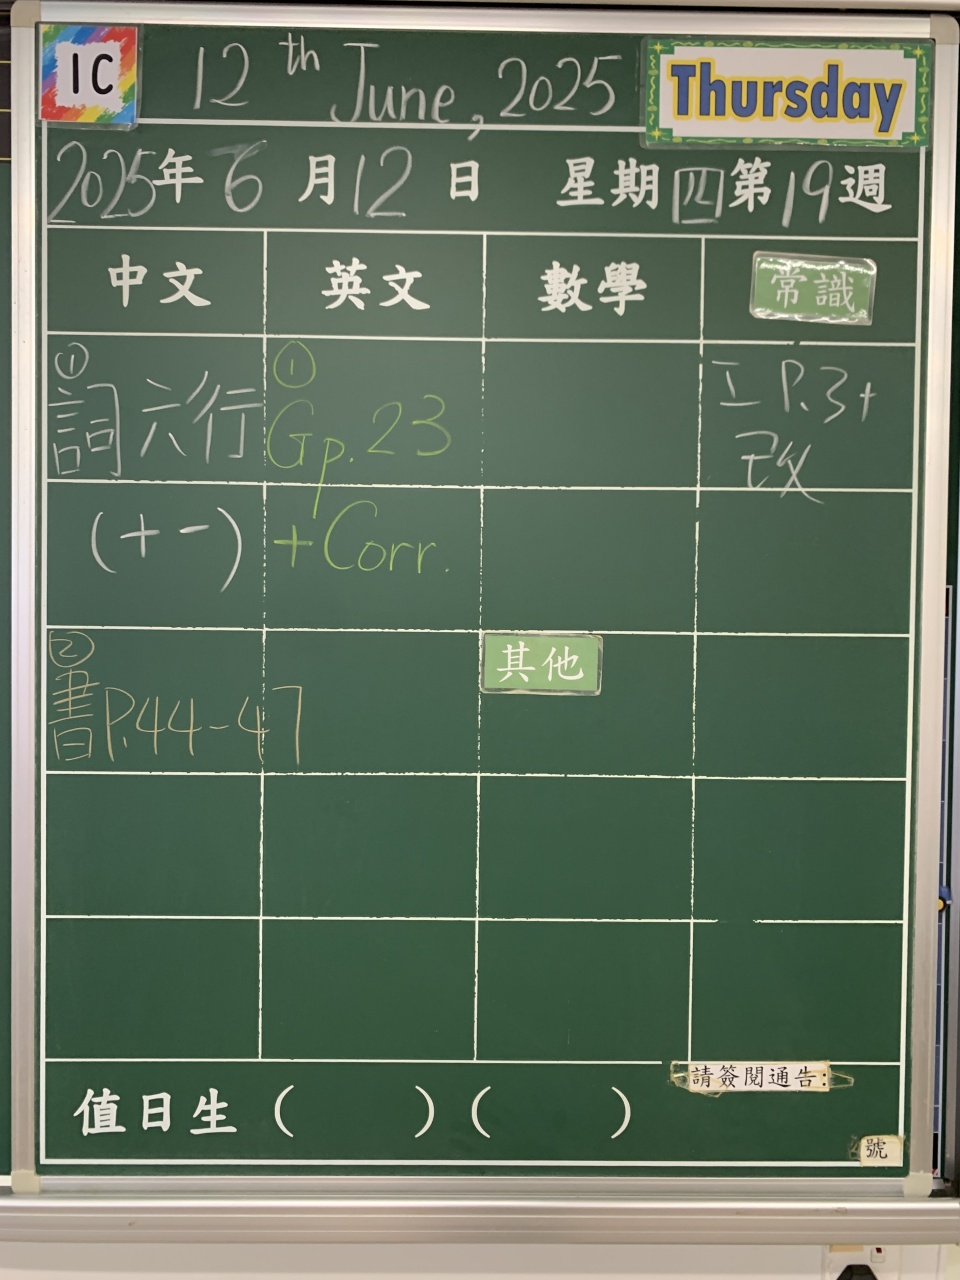 1C 12th June, 2025 Thursday
2025年6月12日 星期四第19週
中文 英文 數學 常識
① ①
詞六行 Gp.23 工 P.3+
改
(+-) +Corr.
② 其他
書P.44-47
值日生 ( ) ( ) 請簽閱通告:
號